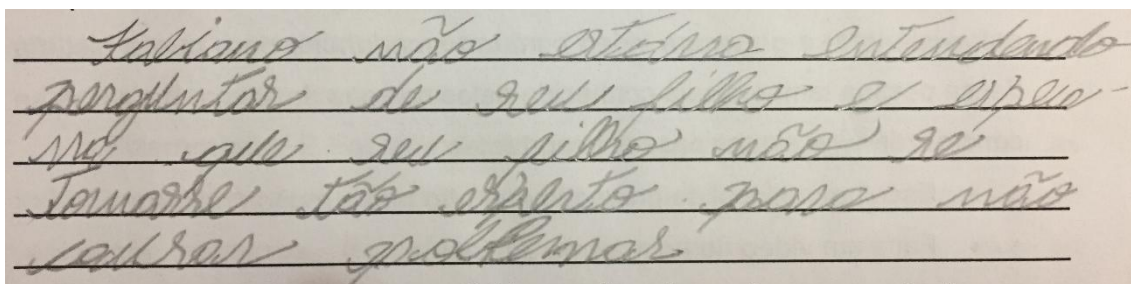 Fabiano não estava entendendo
perguntas de seu filho e espera-
va que seu filho não se
tornasse tão esperto para não
causar problemas